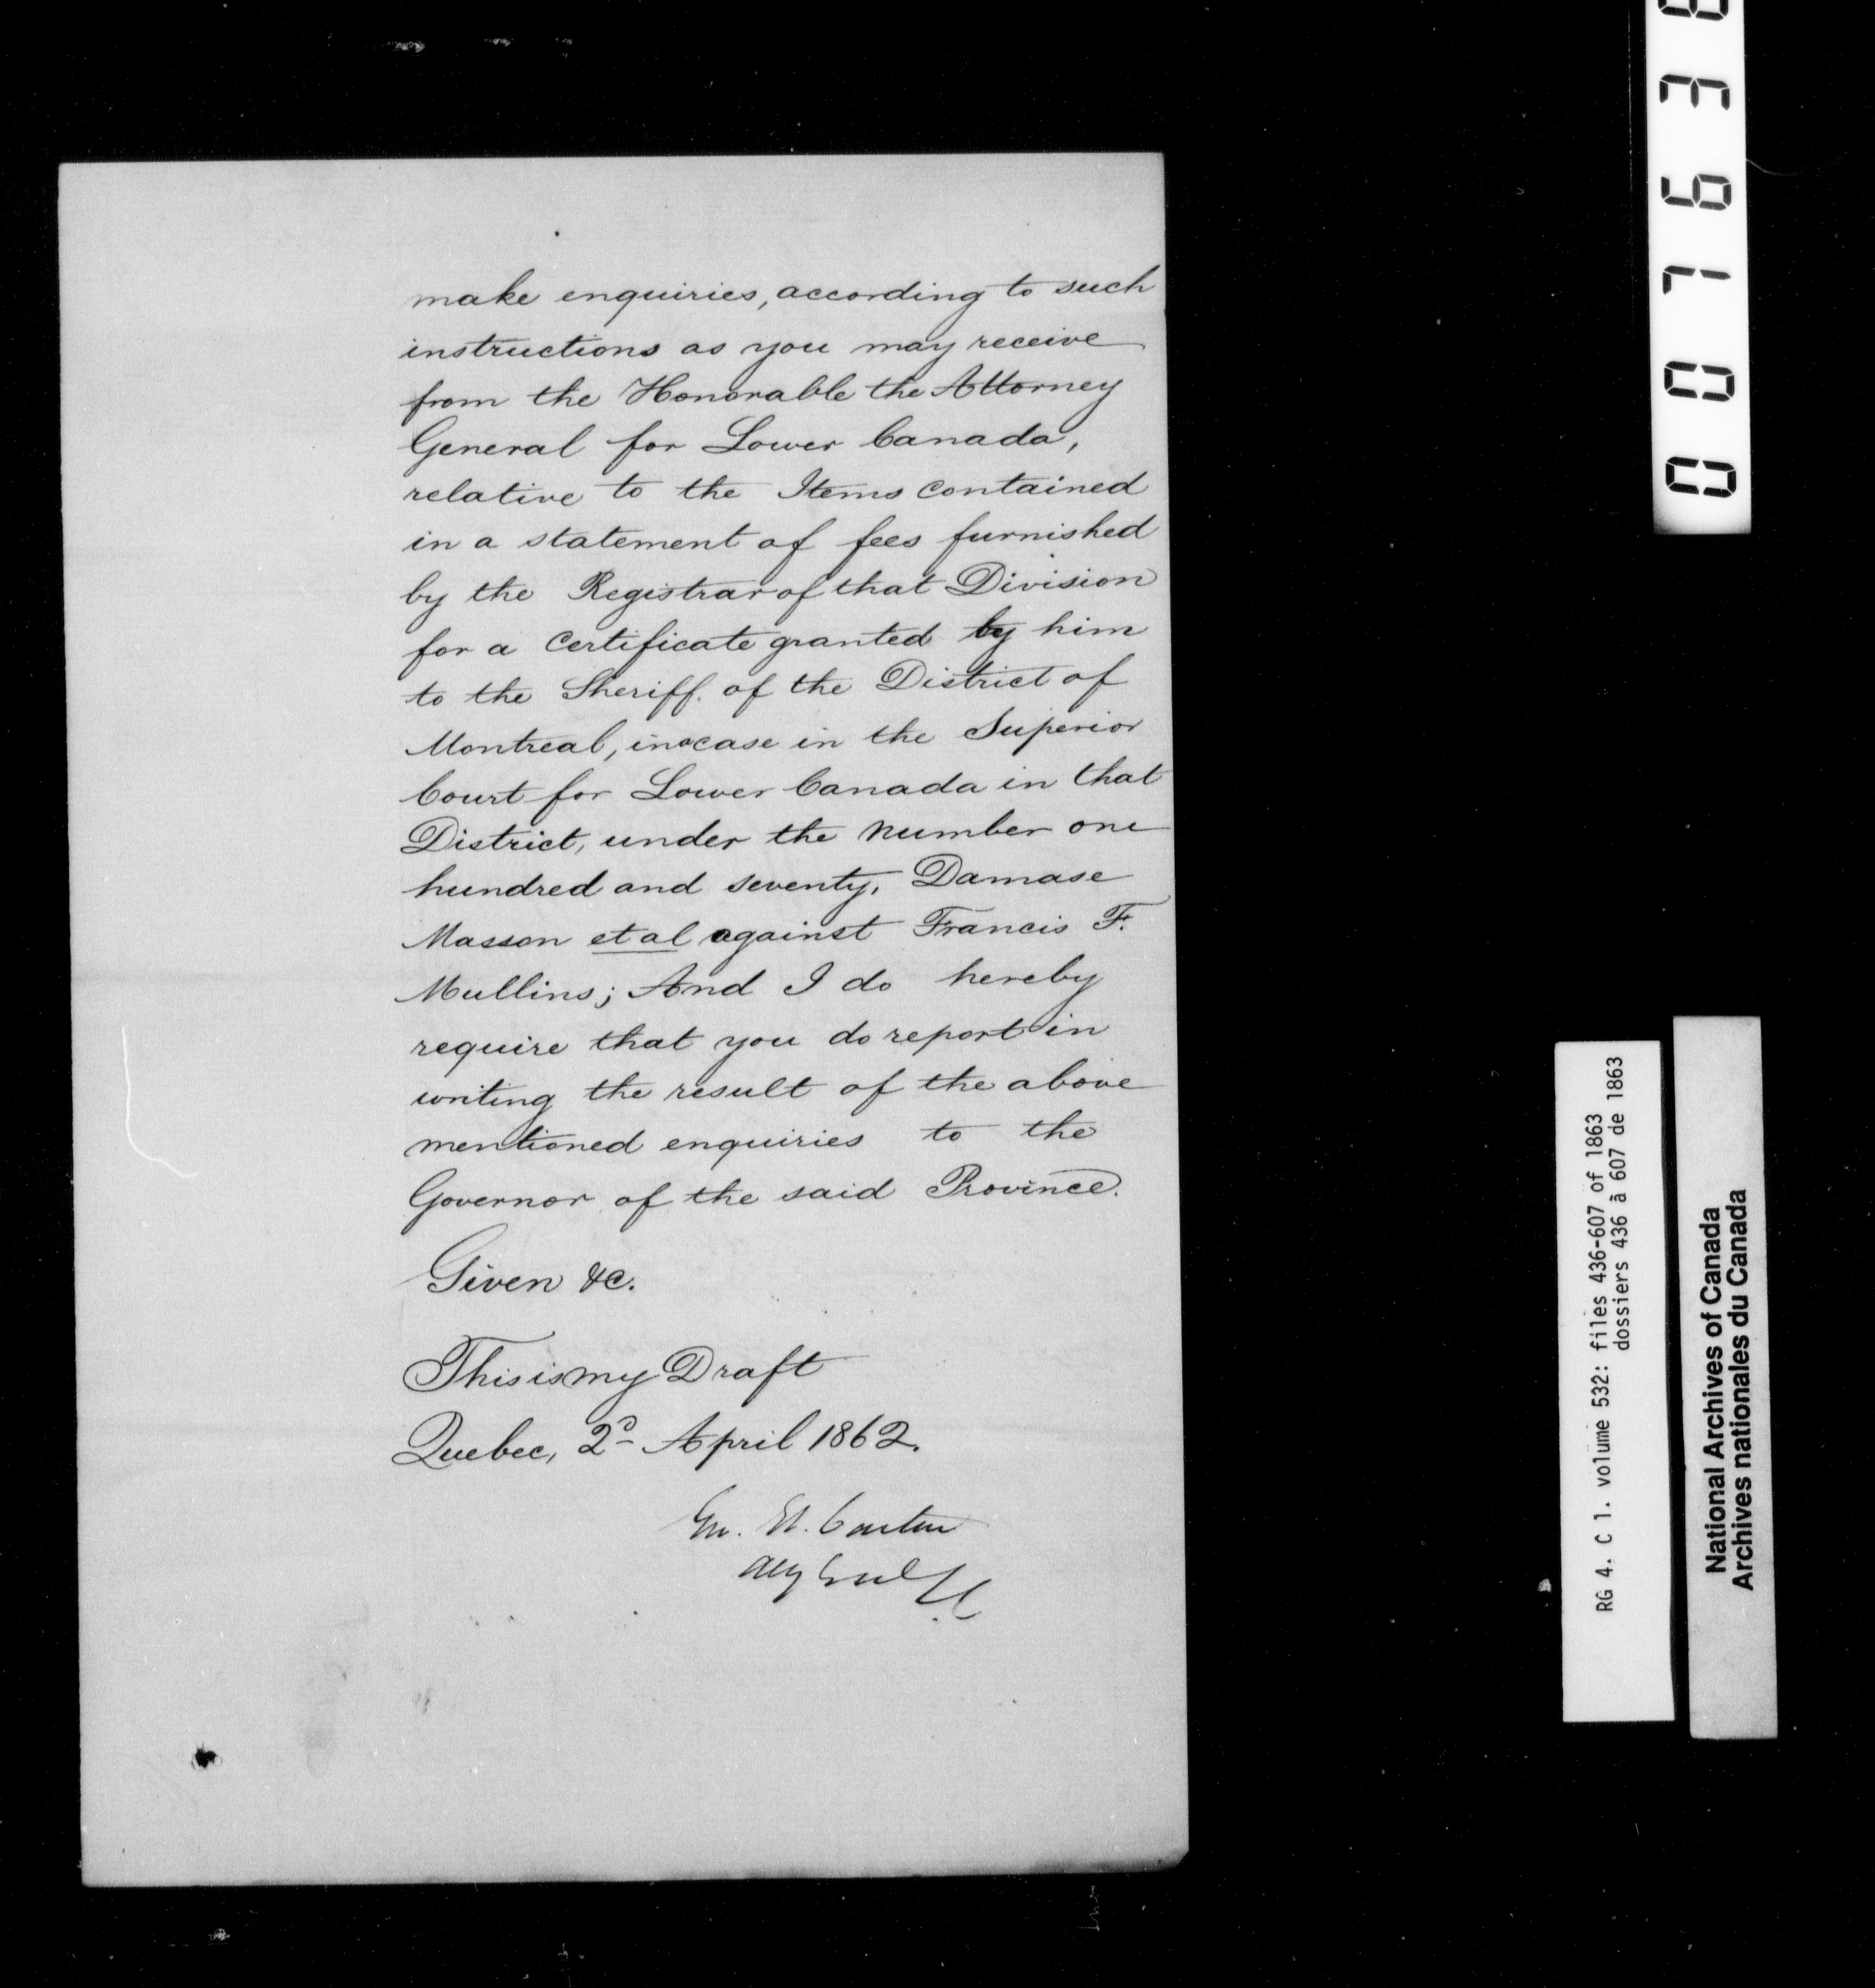 make enquiries, according to such
instructions as you may receive
from the Honorable the Attorney
General for Lower Canada,
relative to the Items contained
in a statement of fees furnished
by the Registrar of that Division
for a Certificate granted by him
to the Sheriff of the District of
Montreal, in a case in the Superior
Court for Lower Canada in that
District, under the number one
hundred and seventy, Damase
Masson et al against Francis F.
Mullins; And I do hereby
require that you do report in
writing the result of the above
mentioned enquiries to the
Governor of the said Province.
Given &c.
This is my Draft
Quebec, 2d April 1862.
Geo. Et. Cartier
Atty Genl LC
007638
RG 4. C 1. volume 532: files 436-607 of 1863
dossiers 436 à 607 de 1863
National Archives of Canada
Archives nationales du Canada